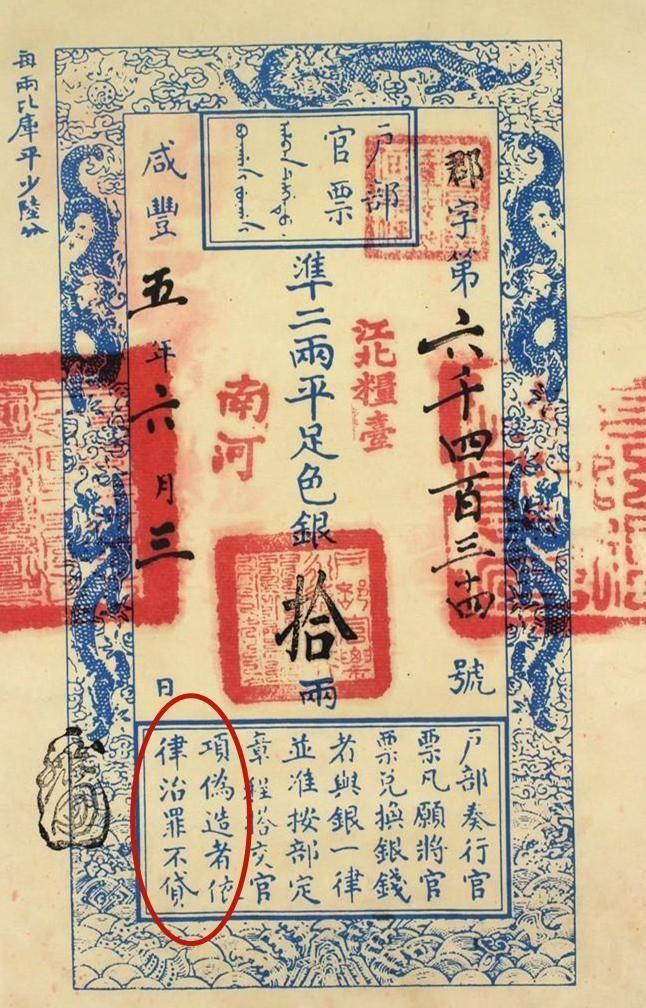 户部
官票
郡字第六千四百三十四號
江北糧臺
準二兩平足色銀拾兩
南河
咸豐五年六月三日
户部奏行官
票凡願將官
票兑換銀錢
者與銀一律
並准按部定
章程搭交官
項偽造者依
律治罪不貸
每兩比庫平少陸分